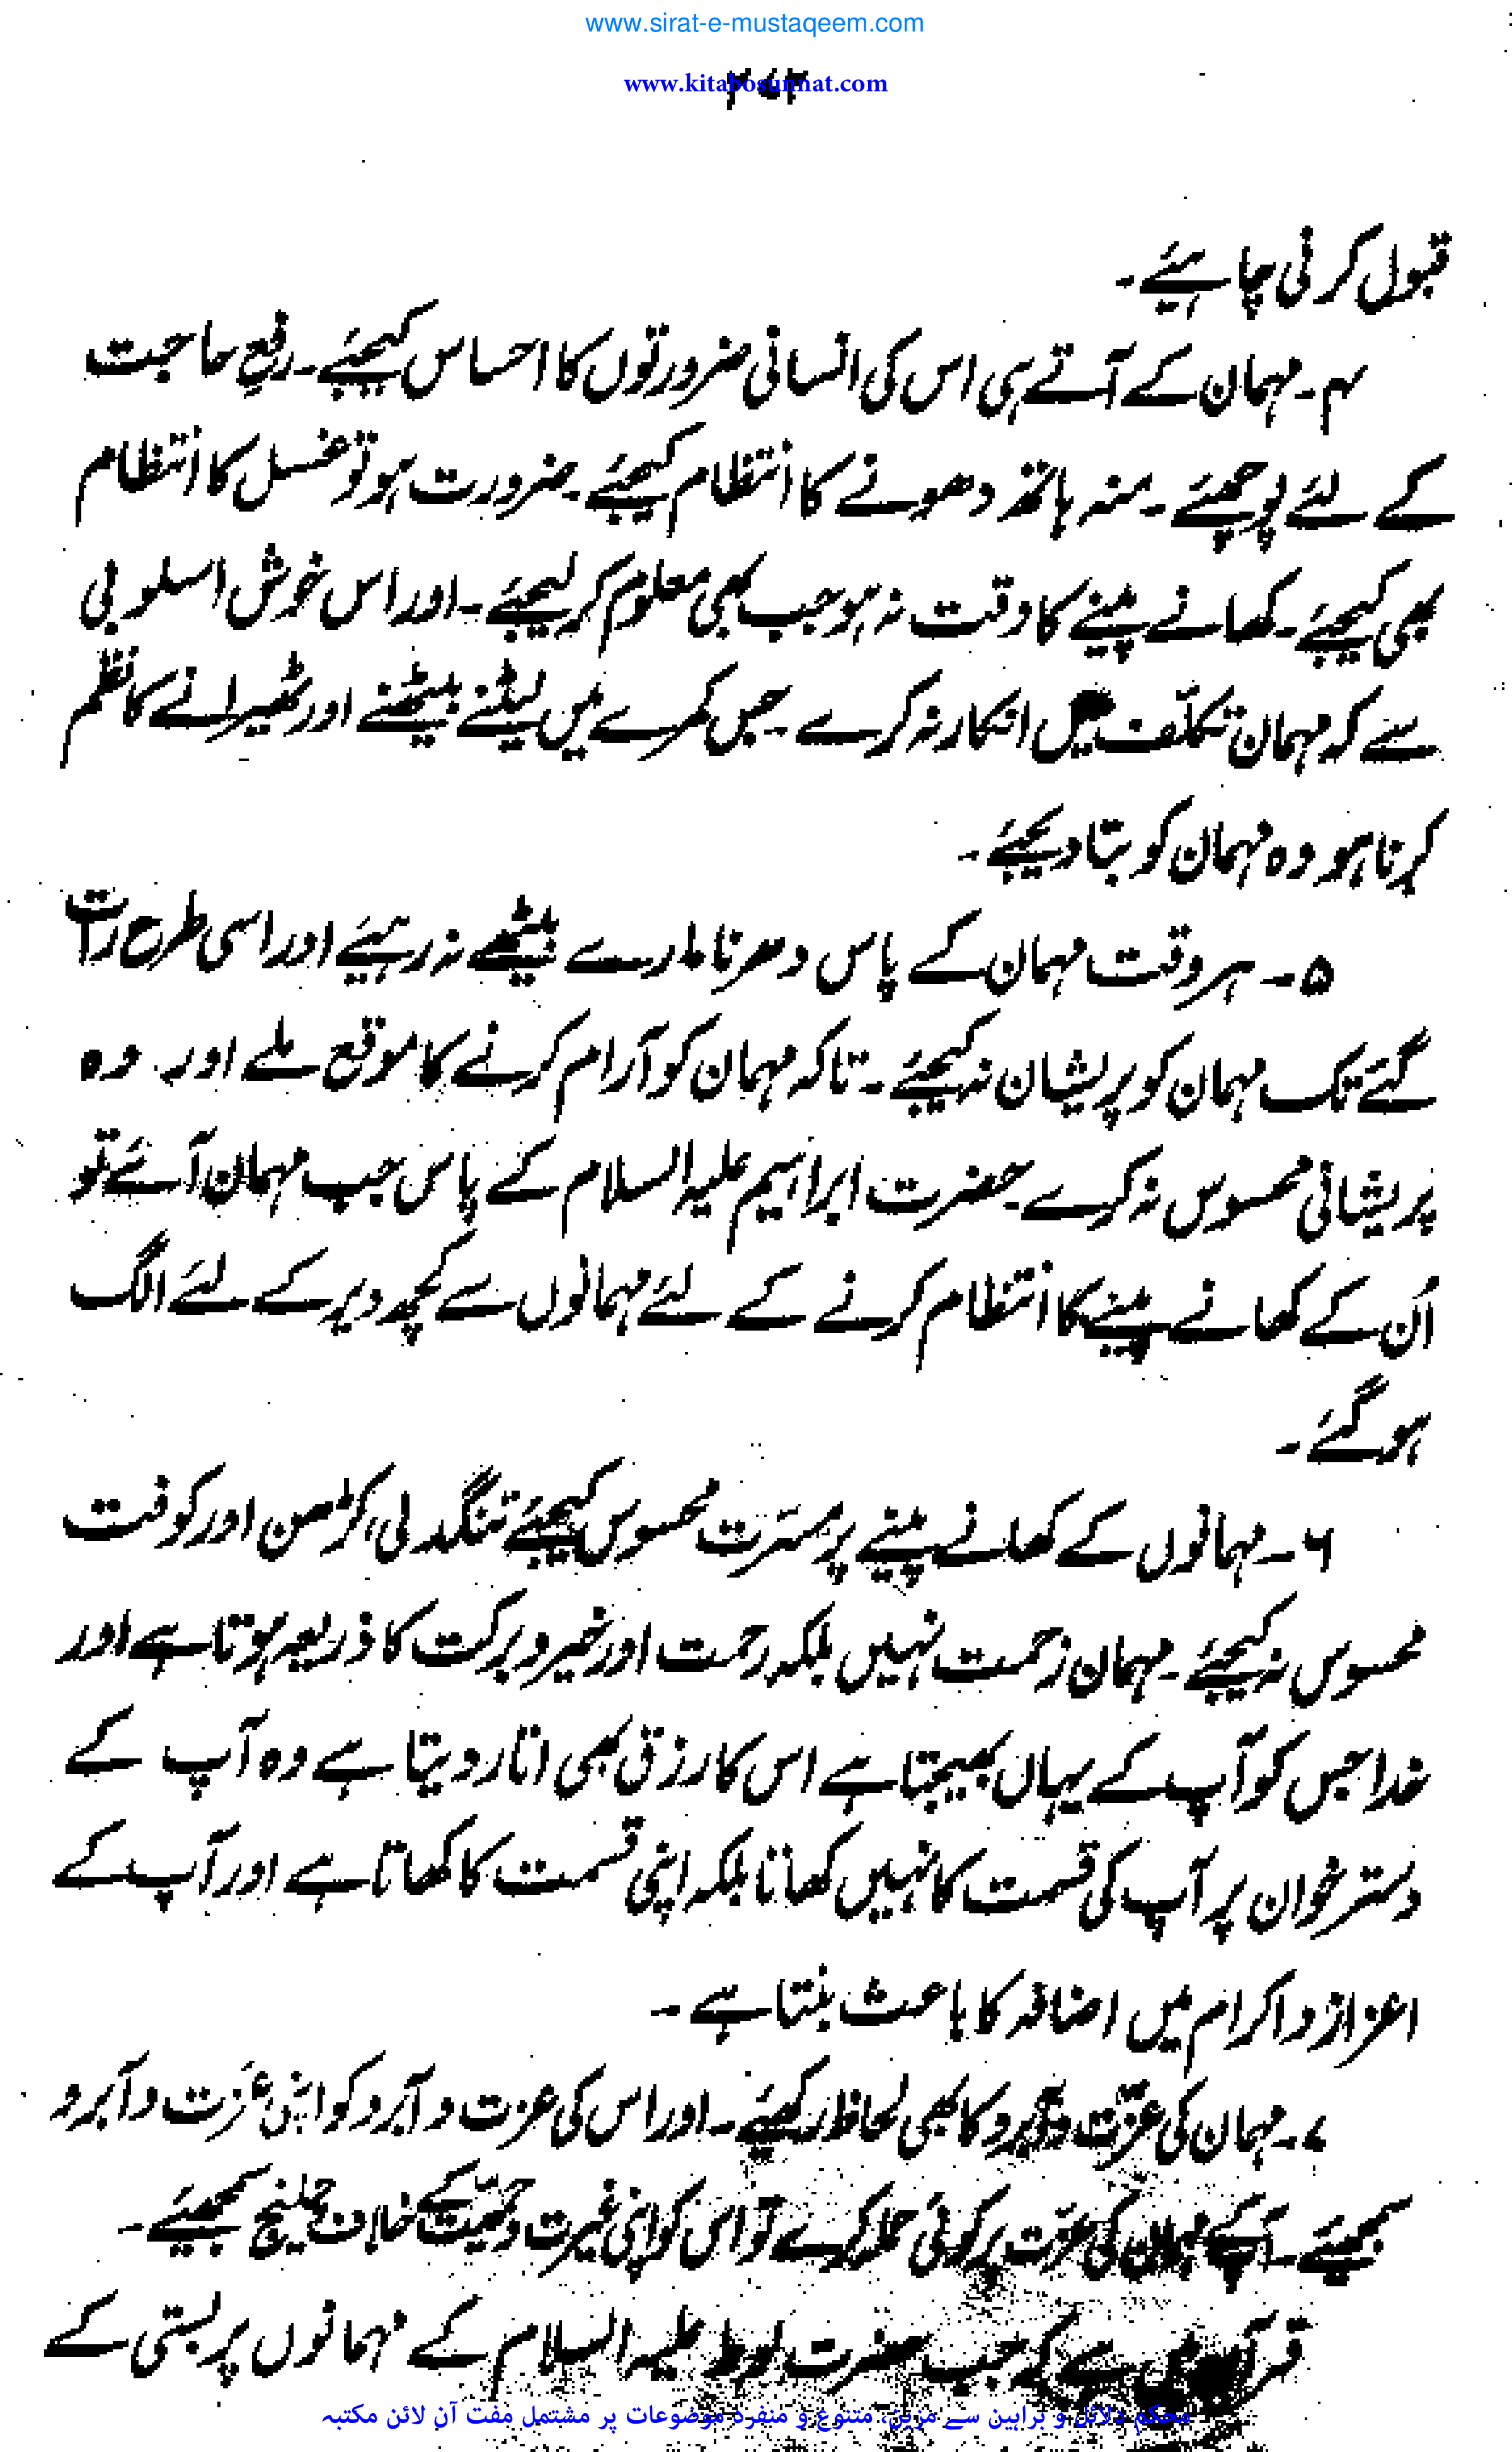 www.sirat-e-mustaqeem.com
www.kitabosunnat.com
قبول کرنی چاہیئے۔
۴۔ مہمان کے آتے ہی اس کی انسانی ضرورتوں کا احساس کیجئے۔ رفع حاجت
کے لئے پوچھئے۔ منہ ہاتھ دھونے کا انتظام کیجئے۔ ضرورت ہو تو غسل کا انتظام
بھی کیجئے۔ کھانے پینے کا وقت نہ ہو جب بھی معلوم کر لیجئے۔ اور اس خوش اسلوبی
سے کہ مہمان تکلّف میں انکار نہ کرے۔ جس کمرے میں لیٹنے بیٹھنے اور ٹھیرانے کا نظم
کرنا ہو وہ مہمان کو بتا دیجئے۔
۵۔ ہر وقت مہمان کے پاس دھرنا مارے بیٹھے نہ رہیئے اور اسی طرح رات
گئے تک مہمان کو پریشان نہ کیجئے۔ تاکہ مہمان کو آرام کرنے کا موقع ملے اور وہ
پریشانی محسوس نہ کرے۔ حضرت ابراہیم علیہ السلام کے پاس جب مہمان آئے تو
اُن کے کھانے پینے کا انتظام کرنے کے لئے مہمانوں سے کچھ دیر کے لئے الگ
ہو گئے۔
۶۔ مہمانوں کے کھانے پینے پر مسّرت محسوس کیجئے تنگدلی، کڑھن اور کوفت
محسوس نہ کیجئے۔ مہمان زحمت نہیں بلکہ رحمت اور خیر و برکت کا ذریعہ ہوتا ہے اور
خدا جس کو آپ کے یہاں بھیجتا ہے اس کا رزق بھی اتار دیتا ہے وہ آپ کے
دستر خوان پر آپ کی قسمت کا نہیں کھاتا بلکہ اپنی قسمت کا کھاتا ہے اور آپ کے
اعزاز و اکرام میں اضافہ کا باعث بنتا ہے۔
۷۔ مہمان کی عزّت و آبرو کا بھی لحاظ رکھیئے۔ اور اس کی عزت و آبرو کو اپنی عزت و آبرو
سمجھیئے۔ آپ کے مہمان کی عزّت پر کوئی حملہ کرے تو اس کو اپنی غیرت و حمیّت کے خلاف چیلنج سمجھیئے۔
قرآن میں ہے کہ جب حضرت لوط علیہ السلام کے مہمانوں پر بستی کے
محکم دلائل و براہین سے مزین، متنوع و منفرد موضوعات پر مشتمل مفت آن لائن مکتبہ